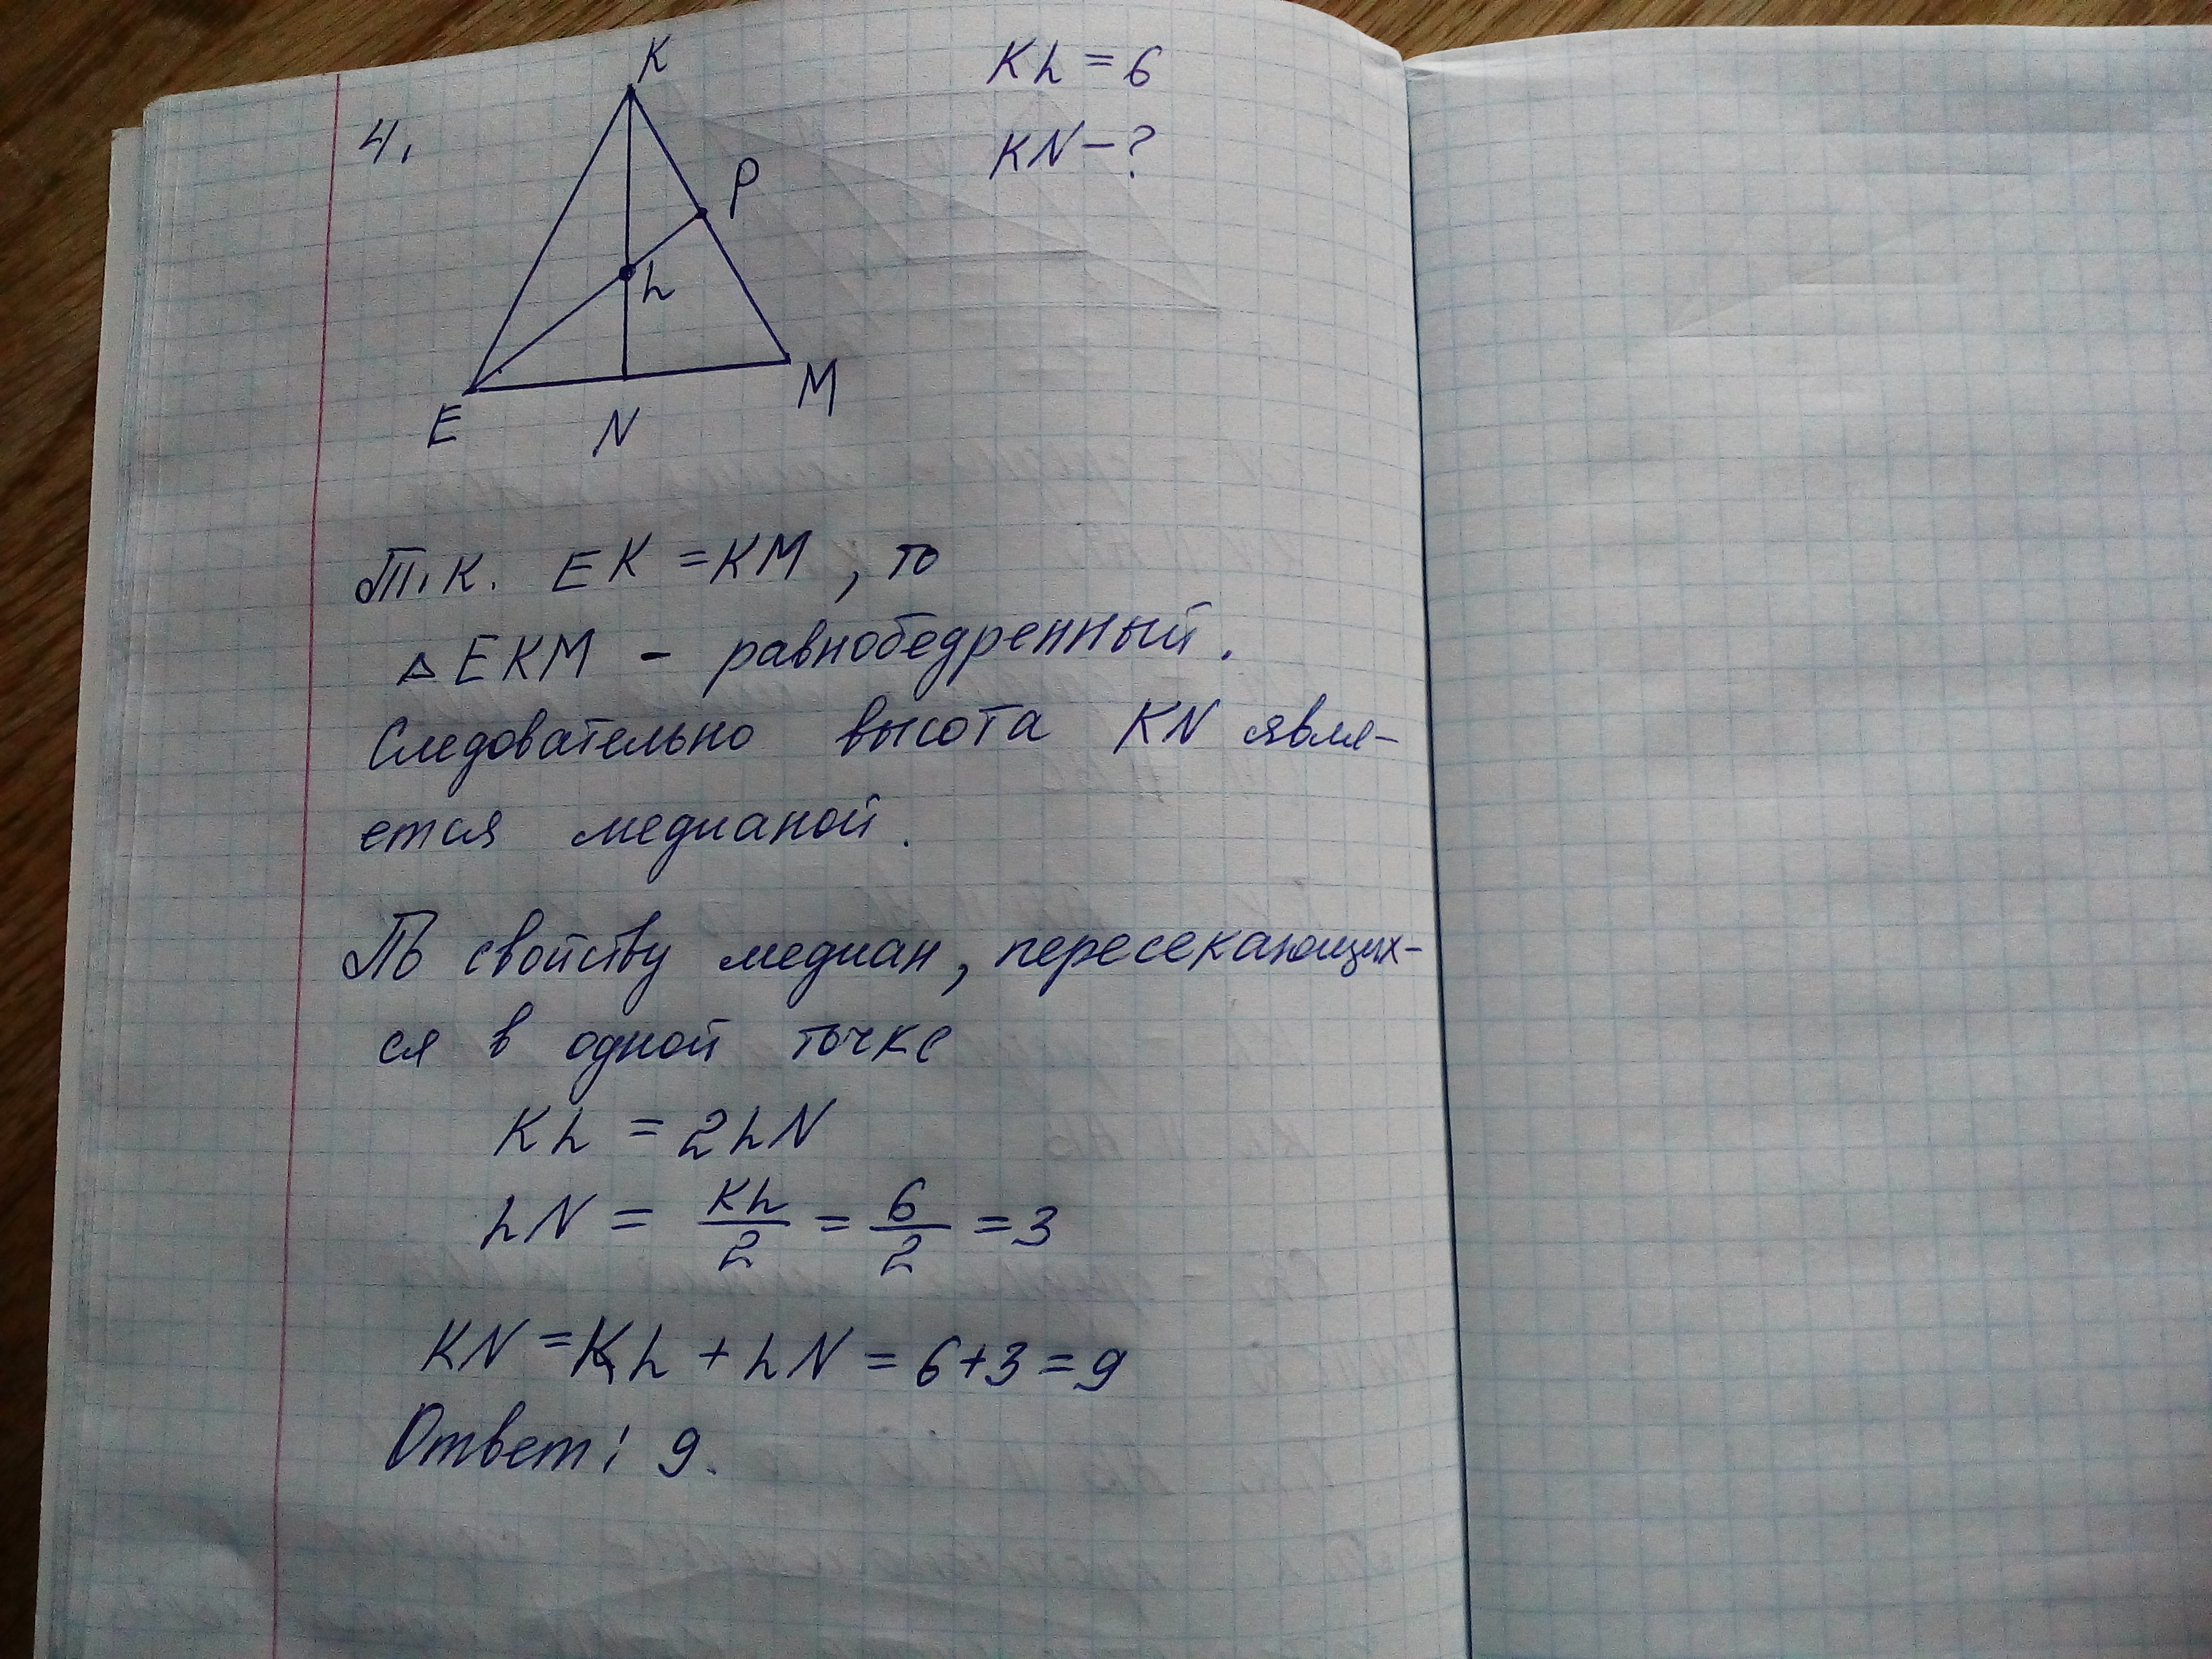 K
Kh = 6
4.
KN - ?
P
h
E
N
M
Т.к. EK = KM, то
△EKM - равнобедренный.
Следовательно высота KN явля-
ется медианой.
По свойству медиан, пересекающих-
ся в одной точке
Kh = 2hN
hN = Kh/2 = 6/2 = 3
KN = Kh + hN = 6+3 = 9
Ответ: 9.